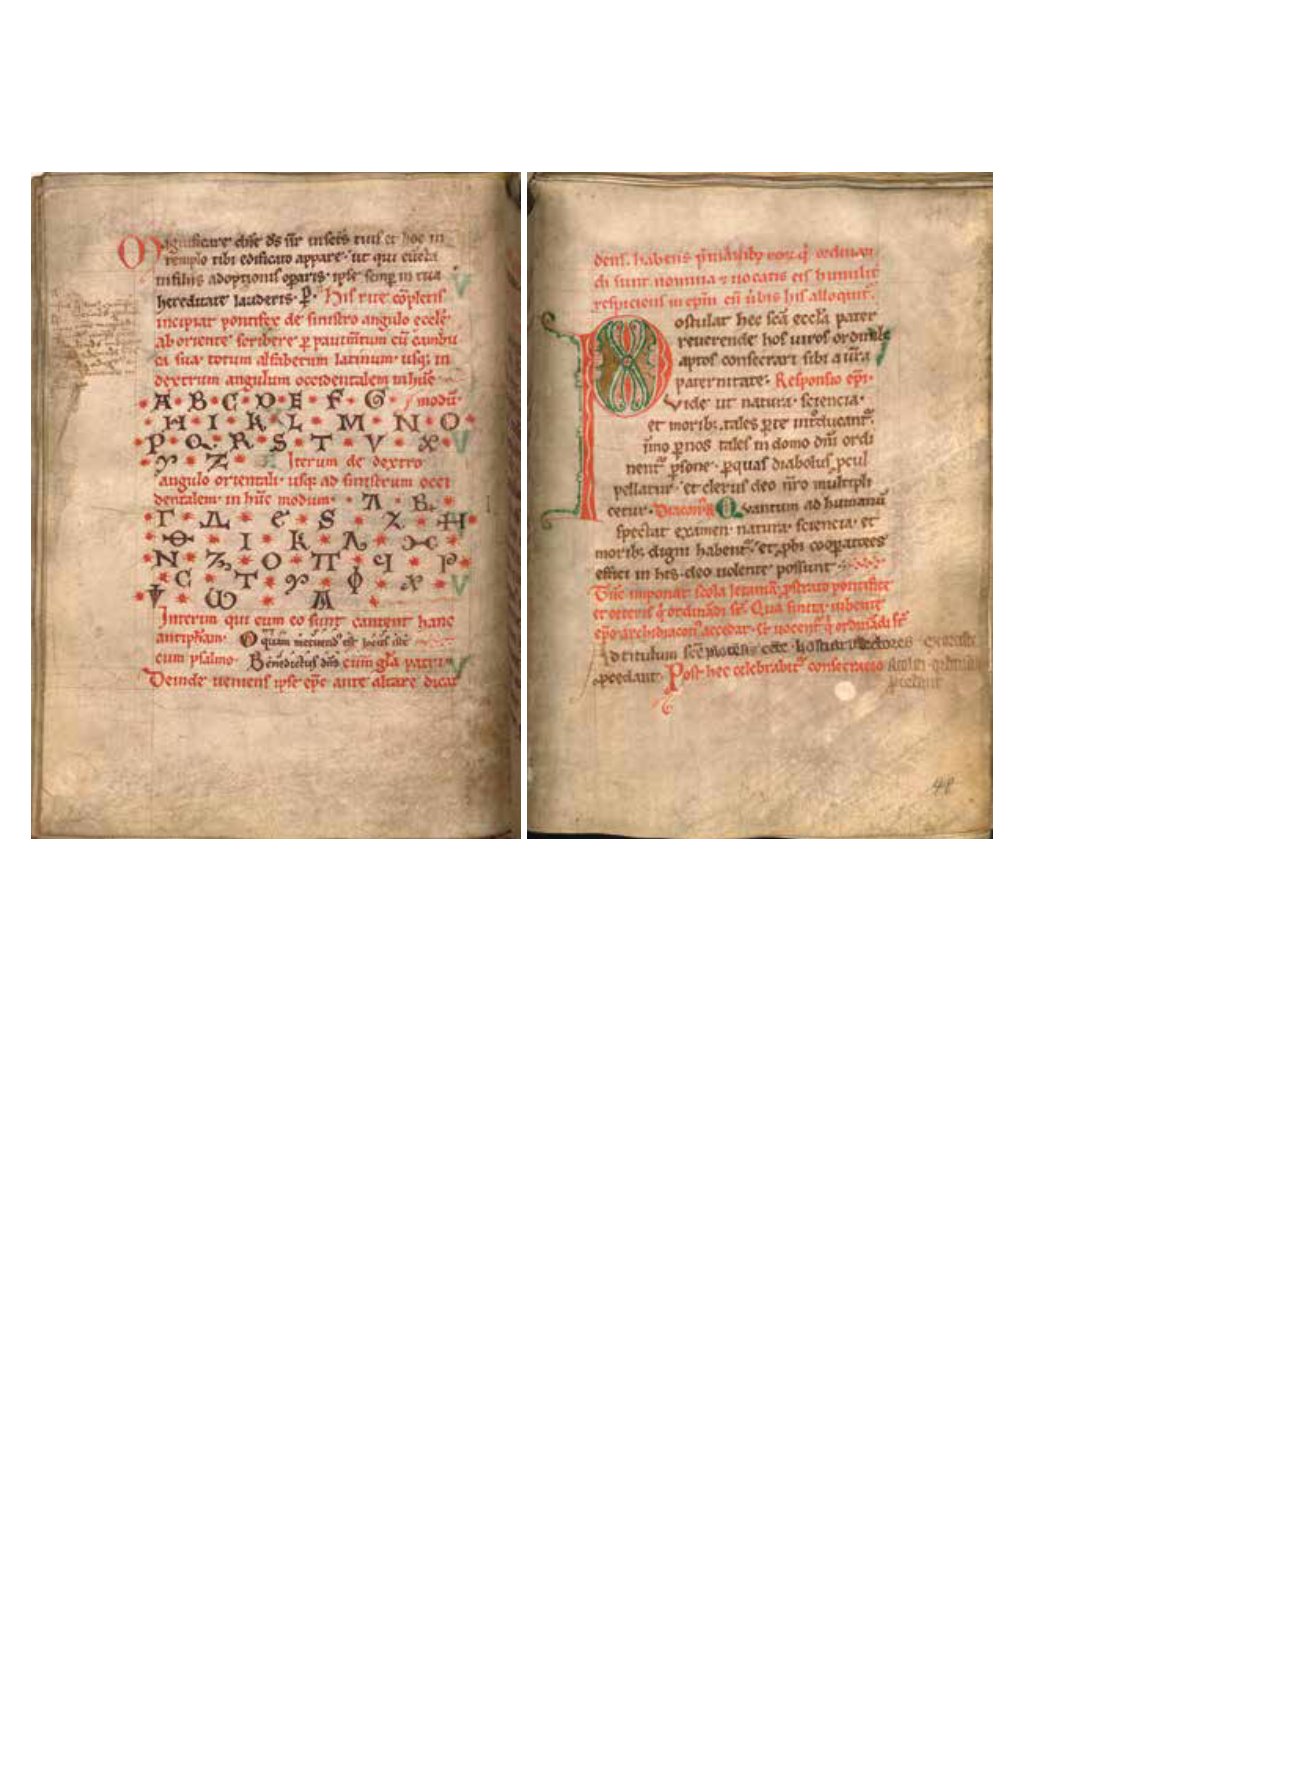 Magnificare dn̄e ds̄ nr̄ in sc̄is tuis et hoc in
templo tibi edificato appare· ut qui cuncta
in filiis adoptionis op̄aris· ipse semp̄ in tua
hereditate lauderis· P̄· His rite cōpletis
incipiat pontifex de sinistro angulo eccl̄e
ab oriente scribere p̄ pauim̄tum cū cambu
ca sua totum alfabetum latinum· usq; in
dextrum angulum occidentalem in hūc
A·B·C·D·E·F·G· modū·
H·I·K·L·M·N·O·
P·Q·R·S·T·V·X·
Y·Z· Iterum de dextro
angulo orientali· usq; ad sinistrum occi
dentalem· in hūc modum· A B
Γ Δ Є S Z H
Θ I K Λ
N O Π Ϥ P
C T Y Φ X
Ѱ Ѡ
Interim qui cum eo sunt cantent hanc
antiph̄am· O quam metuend' est locus iste
cum psalmo· Benedictus dn̄s cum gl̄a patri
Deinde ueniens ipse ep̄c ante altare dicat
dens. habens p̄ manib; q̄ ordinan
di sunt nomina ⁊ uocatis eis humilit̄
respiciens in ep̄m cū u̅bis his alloquit̄.
Postulat hec sc̄a eccl̄a pater
reuerende hos uiros ordinib;
aptos consecrari sibi a ur̄a
paternitate· Responsio ep̄i·
Vide ut natura· sciencia·
et morib; tales p̄ te introducant̄·
īmo p̄ nos tales in domo dn̄i ordi
nent̄ p̄sone· p̄ quas diabolus p̄cul
pellatur· et clerus deo nr̄o multipli
cetur· Diacon' Quantum ad humanū
spectat examen· natura· sciencia· et
morib; digni habent̄· et p̄bi coop̄atores
effici in his· deo uolente possunt·
Tūc imponat scola letaniā· p̄strato pontifice
et ceteris q̄ ordinādi st̄· Qua finita· iubente
ep̄o archidiacon' accedat· et uocent̄ q̄ ordinādi st̄
Ad titulum sc̄e ecc̄e hostiarii lectores exorciste
p̄cedant· Post hec celebrabit̄ consecratio
p̄cedant
48